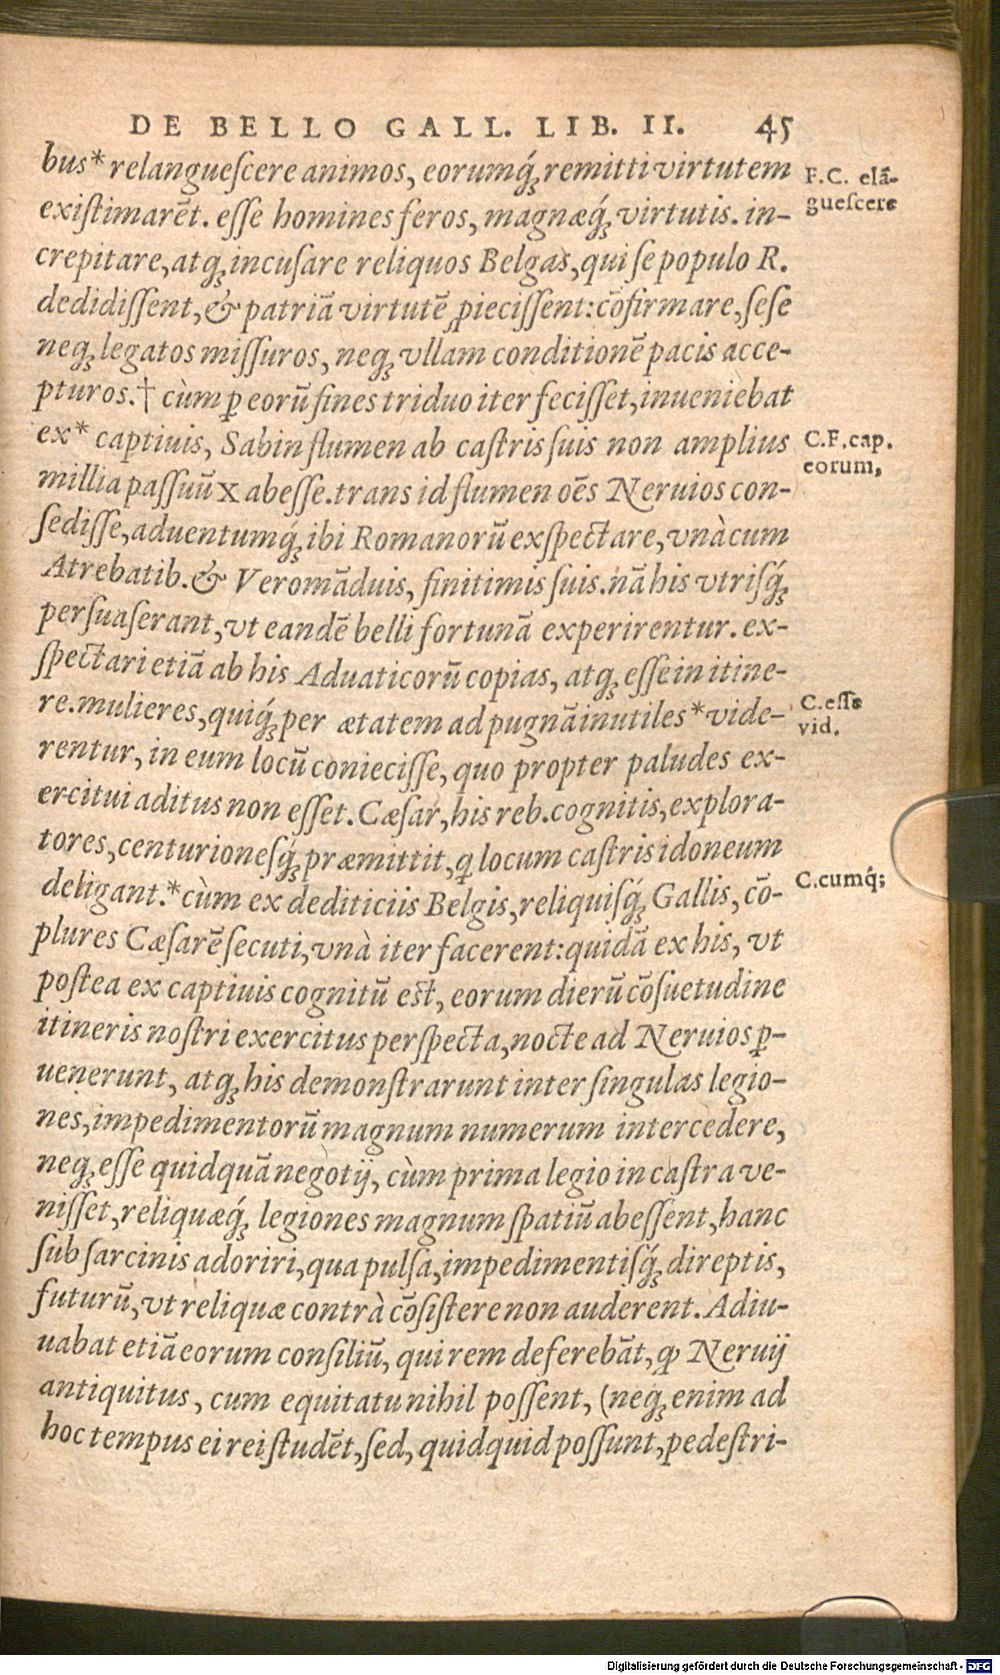 DE BELLO GALL. LIB. II. 45
bus* relangueſcere animos, eorumq́ꝫ remitti virtutem
F.C. elā-
gueſcere
exiſtimarēt. eſſe homines feros, magnæq́ꝫ virtutis. in-
crepitare, atqꝫ incuſare reliquos Belgas, qui ſe populo R.
dedidiſſent, & patriā virtutē ꝓieciſſent: cōfirmare, ſeſe
neqꝫ legatos miſſuros, neqꝫ vllam conditionē pacis acce-
pturos.† cùm ꝑ eorū fines triduo iter feciſſet, inueniebat
ex* captiuis, Sabin flumen ab caſtris ſuis non amplius
C.F. cap.
eorum,
millia paſſuū X abeſſe. trans id flumen oēs Neruios con-
ſediſſe, aduentumq́ꝫ ibi Romanorū exſpectare, vnà cum
Atrebatib. & Veromāduis, finitimis ſuis. nā his vtriſq́ꝫ
perſuaſerant, vt eandē belli fortunā experirentur. ex-
ſpectari etiā ab his Aduaticorū copias, atqꝫ eſſe in itine-
re. mulieres, quiq́ꝫ per ætatem ad pugnā inutiles* vide-
C. eſſe
vid.
rentur, in eum locūównconieciſſe, quo propter paludes ex-
ercitui aditus non eſſet. Cæſar, his reb. cognitis, explora-
tores, centurioneſq́ꝫ præmittit, ꝗ locum caſtris idoneum
deligant.* cùm ex dediticiis Belgis, reliquiſq́ꝫ Gallis, cō-
C. cumq́;
plures Cæſarē ſecuti, vnà iter facerent: quidā ex his, vt
poſtea ex captiuis cognitū eſt, eorum dierū cōſuetudine
itineris noſtri exercitus perſpecta, nocte ad Neruios ꝑ-
uenerunt, atqꝫ his demonſtrarunt inter ſingulas legio-
nes, impedimentorū magnum numerum intercedere,
neqꝫ eſſe quidquā negotij, cùm prima legio in caſtra ve-
niſſet, reliquæq́ꝫ legiones magnum ſpatiū abeſſent, hanc
ſub ſarcinis adoriri, qua pulſa, impedimentiſq́ꝫ direptis,
futurū, vt reliquæ contrà cōſiſtere non auderent. Adiu-
uabat etiā eorum conſiliū, qui rem deferebāt, ꝙ Neruij
antiquitus, cum equitatu nihil poſſent, (neqꝫ enim ad
hoc tempus ei rei ſtudēt, ſed, quidquid poſſunt, pedeſtri-
Digitalisierung gefördert durch die Deutsche Forschungsgemeinschaft - DFG